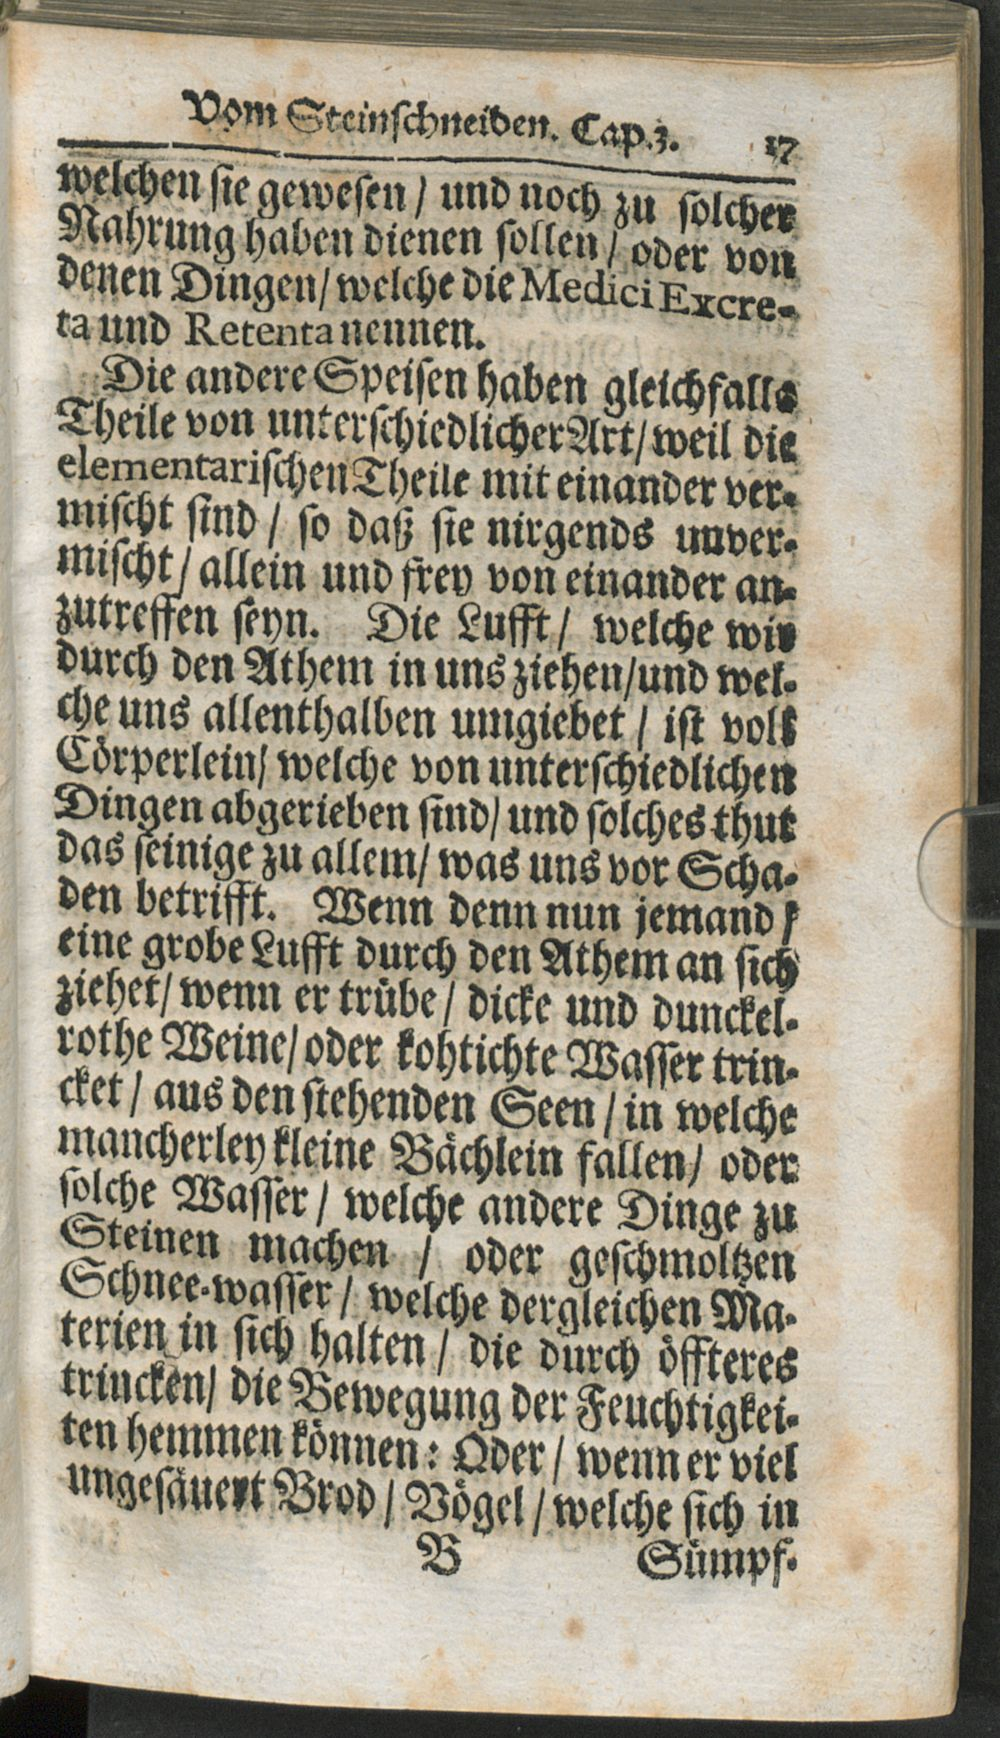 Vom Steinschneiden. Cap. 3. 17
welchen sie gewesen / und noch zu solcher
Nahrung haben dienen sollen / oder von
denen Dingen / welche die Medici Excre-
ta und Retenta nennen.
Die andere Speisen haben gleichfalls
Theile von unterschiedlicher Art / weil die
elementarischen Theile mit einander ver-
mischt sind / so daß sie nirgends unver-
mischt / allein und frey von einander an-
zutreffen seyn. Die Lufft / welche wir
durch den Athem in uns ziehen / und wel-
che uns allenthalben umgiebet / ist voll
Cörperlein / welche von unterschiedlichen
Dingen abgerieben sind / und solches thut
das seinige zu allem / was uns vor Scha-
den betrifft. Wenn denn nun jemand /
eine grobe Lufft durch den Athem an sich
ziehet / wenn er trübe / dicke und dunckel-
rothe Weine / oder kohtichte Wasser trin-
cket / aus den stehenden Seen / in welche
mancherley kleine Bächlein fallen / oder
solche Wasser / welche andere Dinge zu
Steinen machen / oder geschmoltzen
Schnee-wasser / welche dergleichen Ma-
terien in sich halten / die durch öffteres
trincken / die Bewegung der Feuchtigkei-
ten hemmen können: Oder / wenn er viel
ungesäuert Brod / Vögel / welche sich in
B Sümpf-